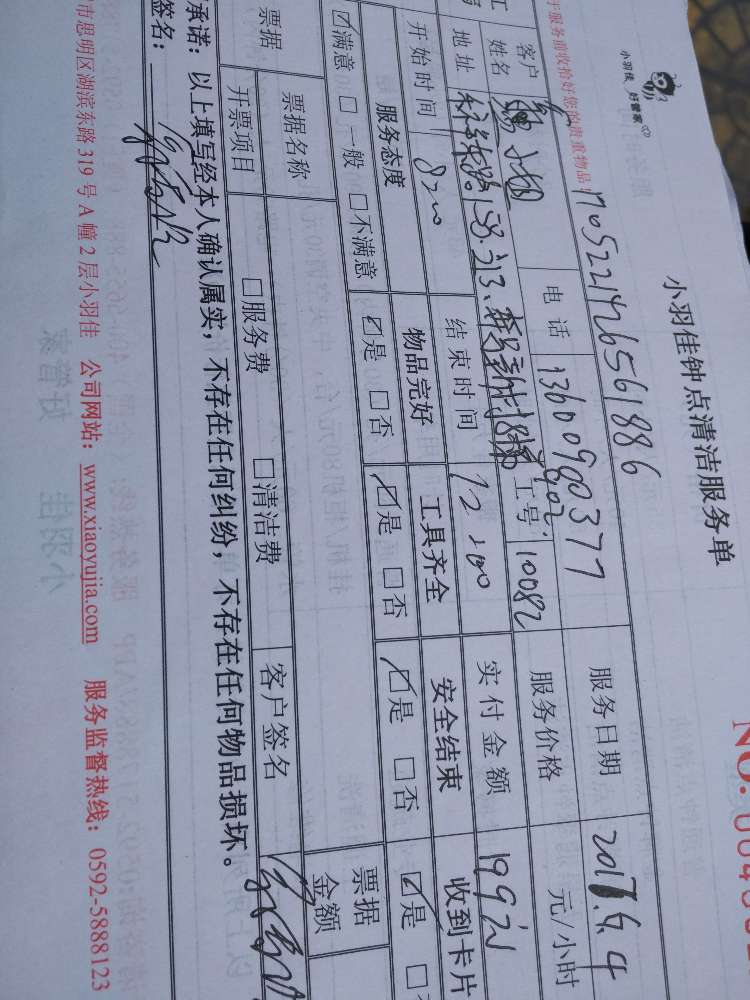 小羽佳钟点清洁服务单
小羽佳 好管家
NO.
于服务前收拾好您的贵重物品!
170522142656561886
客户
姓名
电话
13600960377
服务日期
2017.6.4
地址
工号
10082
服务价格
元/小时
开始时间
8:00
结束时间
12:00
实付金额
199元
服务态度
物品完好
工具齐全
安全结束
收到卡片
☑满意 □一般 □不满意
☑是 □否
☑是 □否
☑是 □否
☑是
票据
票据名称
票据
金额
开票项目
□服务费
□清洁费
客户签名
承诺：以上填写经本人确认属实，不存在任何纠纷，不存在任何物品损坏。
签名：
市思明区湖滨东路 319 号 A 幢 2 层小羽佳 公司网站：www.xiaoyujia.com 服务监督热线：0592-5888123